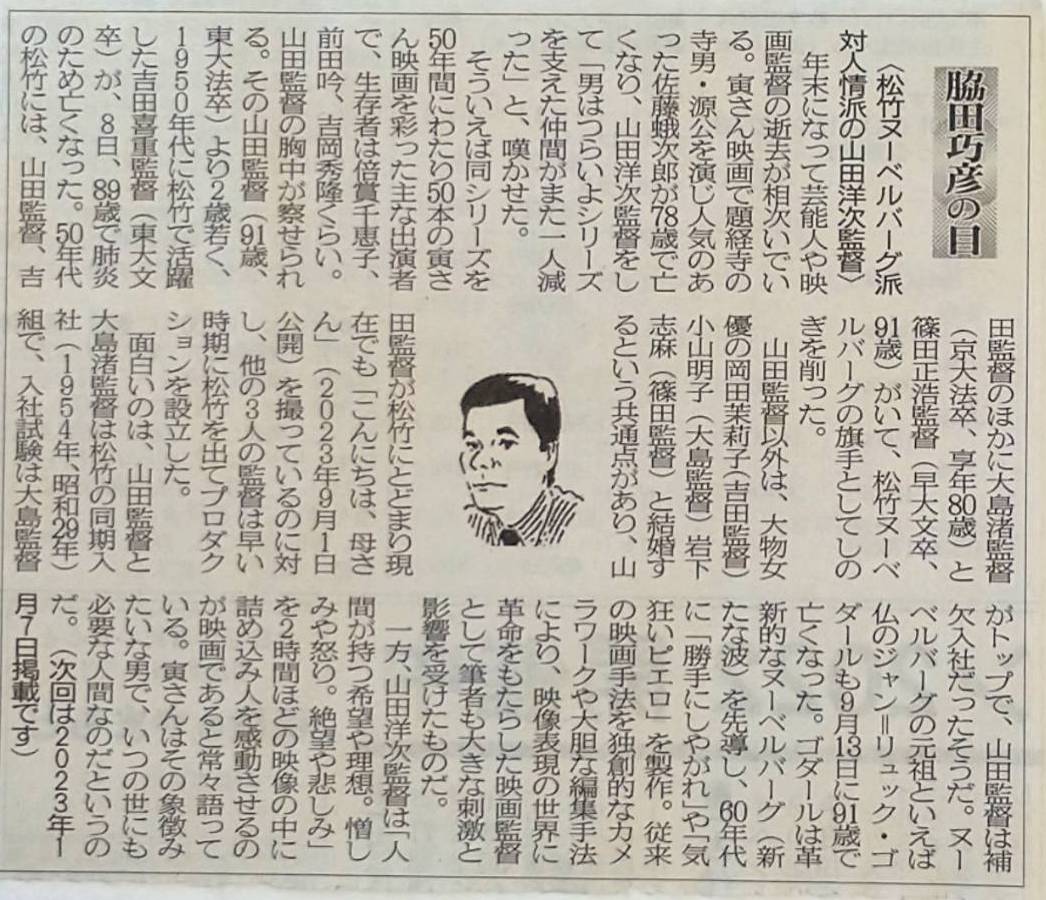 脇田巧彦の目
〈松竹ヌーベルバーグ派
対人情派の山田洋次監督〉
年末になって芸能人や映
画監督の逝去が相次いでい
る。寅さん映画で題経寺の
寺男・源公を演じ人気のあ
った佐藤蛾次郎が78歳で亡
くなり、山田洋次監督をし
て「男はつらいよシリーズ
を支えた仲間がまた一人減
った」と、嘆かせた。
そういえば同シリーズを
50年間にわたり50本の寅さ
ん映画を彩った主な出演者
で、生存者は倍賞千恵子、
前田吟、吉岡秀隆くらい。
山田監督の胸中が察せられ
る。その山田監督（91歳、
東大法卒）より2歳若く、
1950年代に松竹で活躍
した吉田喜重監督（東大文
卒）が、8日、89歳で肺炎
のため亡くなった。50年代
の松竹には、山田監督、吉
田監督のほかに大島渚監督
（京大法卒、享年80歳）と
篠田正浩監督（早大文卒、
91歳）がいて、松竹ヌーベ
ルバーグの旗手としてしの
ぎを削った。
山田監督以外は、大物女
優の岡田茉莉子（吉田監督）
小山明子（大島監督）岩下
志麻（篠田監督）と結婚す
るという共通点があり、山
田監督が松竹にとどまり現
在でも「こんにちは、母さ
ん」（2023年9月1日
公開）を撮っているのに対
し、他の3人の監督は早い
時期に松竹を出てプロダク
ションを設立した。
面白いのは、山田監督と
大島渚監督は松竹の同期入
社（1954年、昭和29年）
組で、入社試験は大島監督
がトップで、山田監督は補
欠入社だったそうだ。ヌー
ベルバーグの元祖といえば
仏のジャン＝リュック・ゴ
ダールも9月13日に91歳で
亡くなった。ゴダールは革
新的なヌーベルバーグ（新
たな波）を先導し、60年代
に「勝手にしやがれ」や「気
狂いピエロ」を製作。従来
の映画手法を独創的なカメ
ラワークや大胆な編集手法
により、映像表現の世界に
革命をもたらした映画監督
として筆者も大きな刺激と
影響を受けたものだ。
一方、山田洋次監督は「人
間が持つ希望や理想。憎し
みや怒り。絶望や悲しみ」
を2時間ほどの映像の中に
詰め込み人を感動させるの
が映画であると常々語って
いる。寅さんはその象徴み
たいな男で、いつの世にも
必要な人間なのだというの
だ。（次回は2023年1
月7日掲載です）